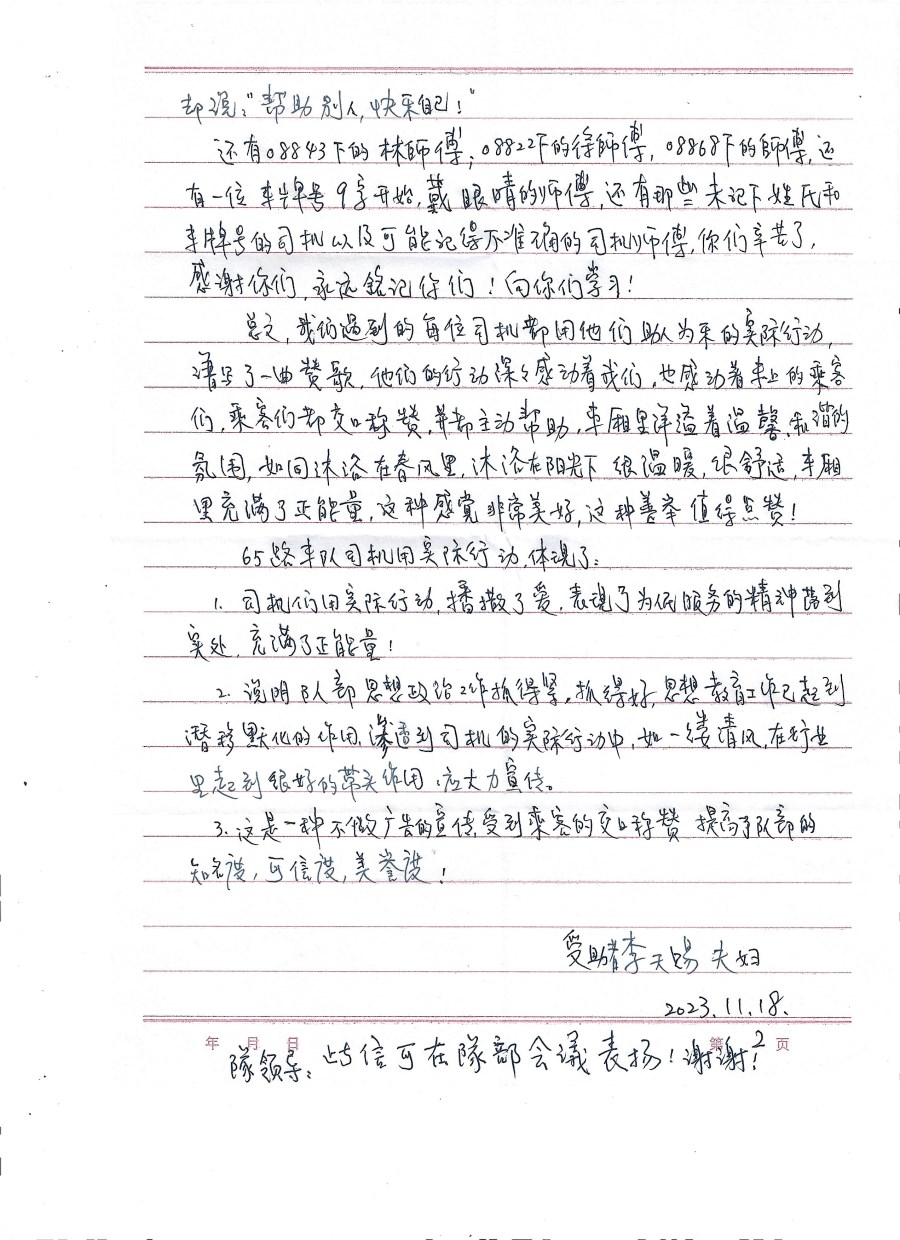 却说:"帮助别人,快乐自己!"
还有08843下的林師傅,08822下的徐師傅,08868下的師傅,还
有一位车牌号9字开始,戴眼睛的师傅,还有那些未记下姓氏和
车牌号的司机以及可能记得不准确的司机师傅,你们辛苦了,
感谢你们,永远铭记你们!向你们学习!
总之,我们遇到的每位司机都用他们助人为乐的实际行动,
谱写了一曲赞歌,他们的行动深々感动着我们,也感动着车上的乘客
们,乘客们都交口称赞,并都主动帮助,车厢里洋溢着温馨、和谐的
氛围,如同沐浴在春风里,沐浴在阳光下很温暖,很舒适,车厢
里充满了正能量,这种感觉非常美好,这种善举值得点赞!
65路车队司机用实际行动,体现了:
1. 司机们用实际行动,播撒了爱,表现了为民服务的精神落到
实处,充满了正能量!
2. 说明队部思想政治工作抓得紧,抓得好,思想教育工作已起到
潜移默化的作用,渗透到司机的实际行动中,如一缕清风,在行业
里起到很好的带头作用,应大力宣传。
3. 这是一种不做广告的宣传,受到乘客的交口称赞 提高了队部的
知名度,可信度,美誉度!
受助者李天赐夫妇
2023.11.18.
年 月 日 第2页
隊领导:此信可在隊部会議表扬!谢谢!